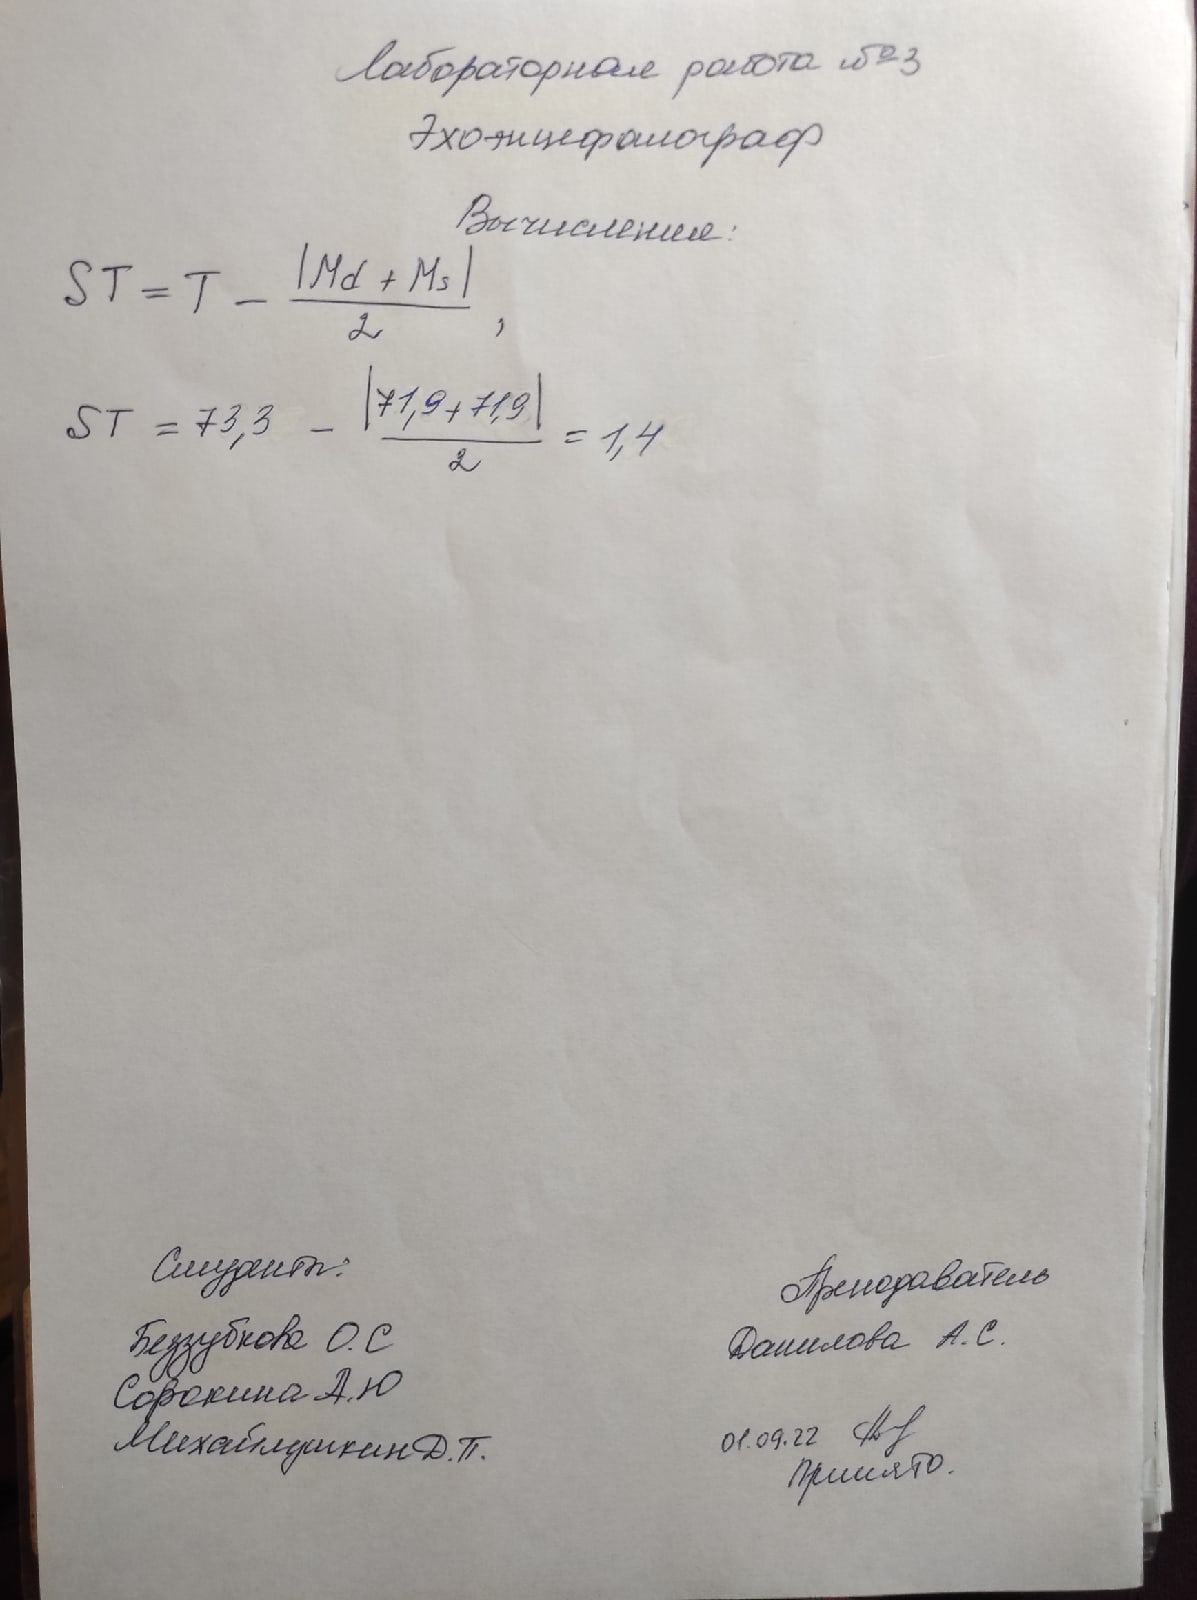 Лабораторная работа №3
Эхоэнцефалограф
Вычисление:
ST = T - |Md + Ms| / 2 ,
ST = 73,3 - |71,9 + 71,9| / 2 = 1,4
Студенты:
Беззубкова О.С
Сорокина А.Ю
Михайлушкин Д.П.
Преподаватель
Данилова А.С.
01.09.22
Принято.